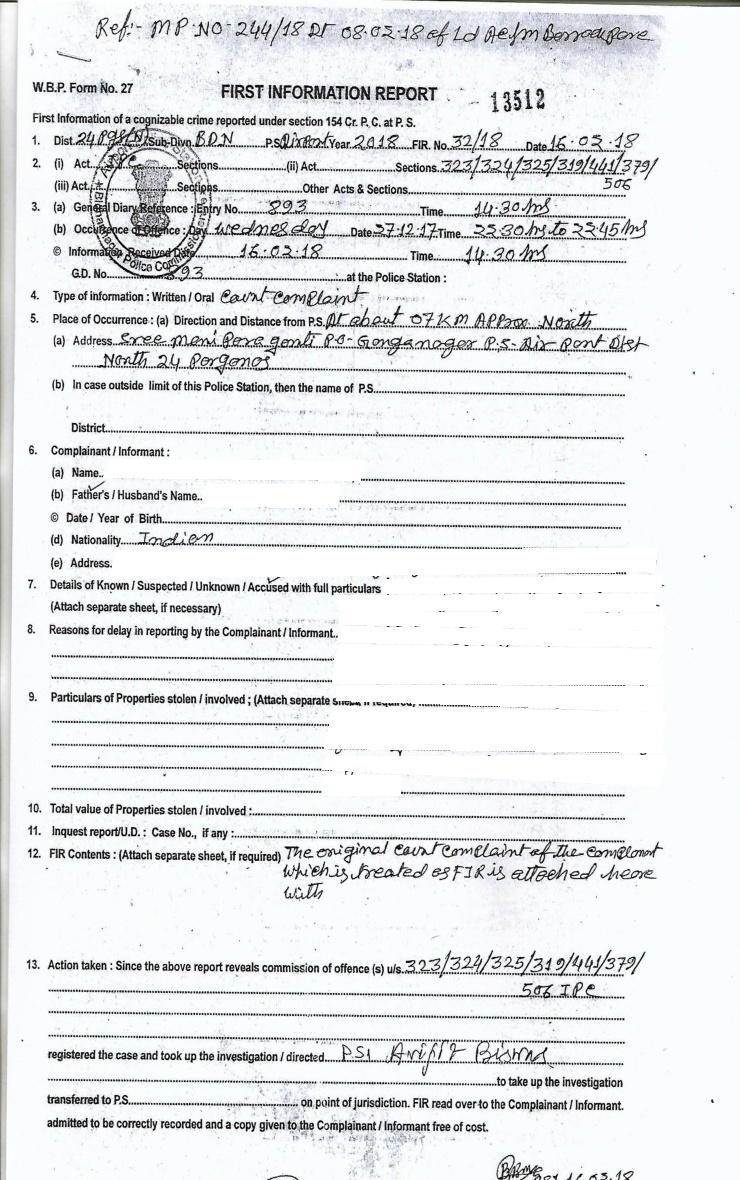 Ref:- MP NO-244/18 DT 08.03.18 of Ld ACJM Barrackpore
W.B.P. Form No. 27
FIRST INFORMATION REPORT
13512
First Information of a cognizable crime reported under section 154 Cr. P. C. at P. S.
1. Dist. 24 Pgs(N) Sub-Divn. BDN P.S. Airport Year 2018 FIR. No. 32/18 Date 16.03.18
2. (i) Act Sections (ii) Act Sections 323/324/325/319/441/379/
506
(iii) Act Sections Other Acts & Sections
3. (a) General Diary Reference : Entry No. 893 Time 14.30 hrs
(b) Occurence of Offence : Day wednesday Date 27.12.17 Time 23.30 hrs to 23.45 hrs
© Information Received Date 16.03.18 Time 14.30 hrs
G.D. No. 893 at the Police Station :
4. Type of information : Written / Oral Court Complaint
5. Place of Occurrence : (a) Direction and Distance from P.S. At about 07 KM Approx North
(a) Address Sree Moni Para ganti P.O- Ganganagar P.S- Air Port Dist
North 24 Parganas
(b) In case outside limit of this Police Station, then the name of P.S.
District
6. Complainant / Informant :
(a) Name
(b) Father's / Husband's Name
© Date / Year of Birth
(d) Nationality Indian
(e) Address.
7. Details of Known / Suspected / Unknown / Accused with full particulars
(Attach separate sheet, if necessary)
8. Reasons for delay in reporting by the Complainant / Informant
9. Particulars of Properties stolen / involved ; (Attach separate sheet, if required)
10. Total value of Properties stolen / involved :
11. Inquest report/U.D. : Case No., if any :
12. FIR Contents : (Attach separate sheet, if required) The original court complaint of the complanant
which is treated as FIR is attached heare
with
13. Action taken : Since the above report reveals commission of offence (s) u/s. 323/324/325/319/441/379/
506 IPC
registered the case and took up the investigation / directed PSI Arijit Biswas
to take up the investigation
transferred to P.S. on point of jurisdiction. FIR read over to the Complainant / Informant.
admitted to be correctly recorded and a copy given to the Complainant / Informant free of cost.
16.03.18